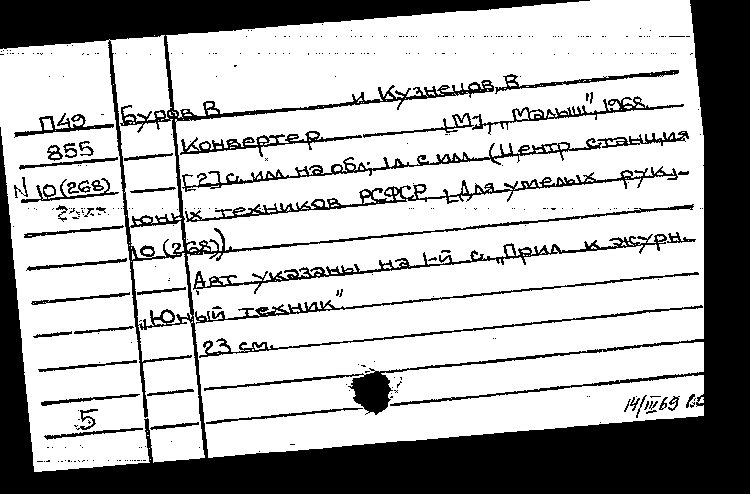 П49 Буров В и Кузнецов, В
855 Конвертер. [М], „Малыш", 1968.
N 10(268) [2] с. илл. на обл; 1л. с илл. (Центр. станция
юных техников РСФСР. Для умелых рук,-
10 (268)).
Авт указаны на 1-й с. „Прил. к журн.
„Юный техник".
23 см.
5
14/III 69